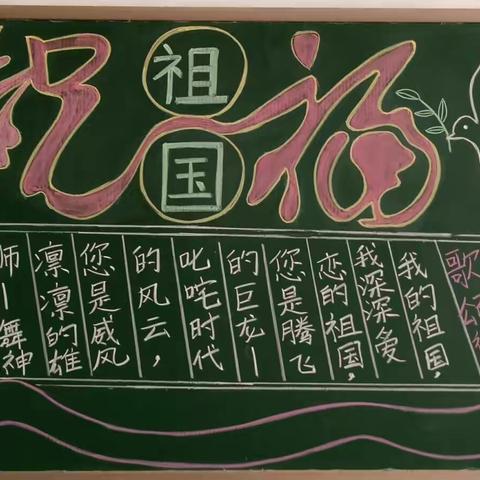 祝福
祖国
歌颂祖
我的祖国,
我深深爱
恋的祖国,
您是腾飞
的巨龙—
叱咤时代
的风云,
您是威风
凛凛的雄
师—舞神